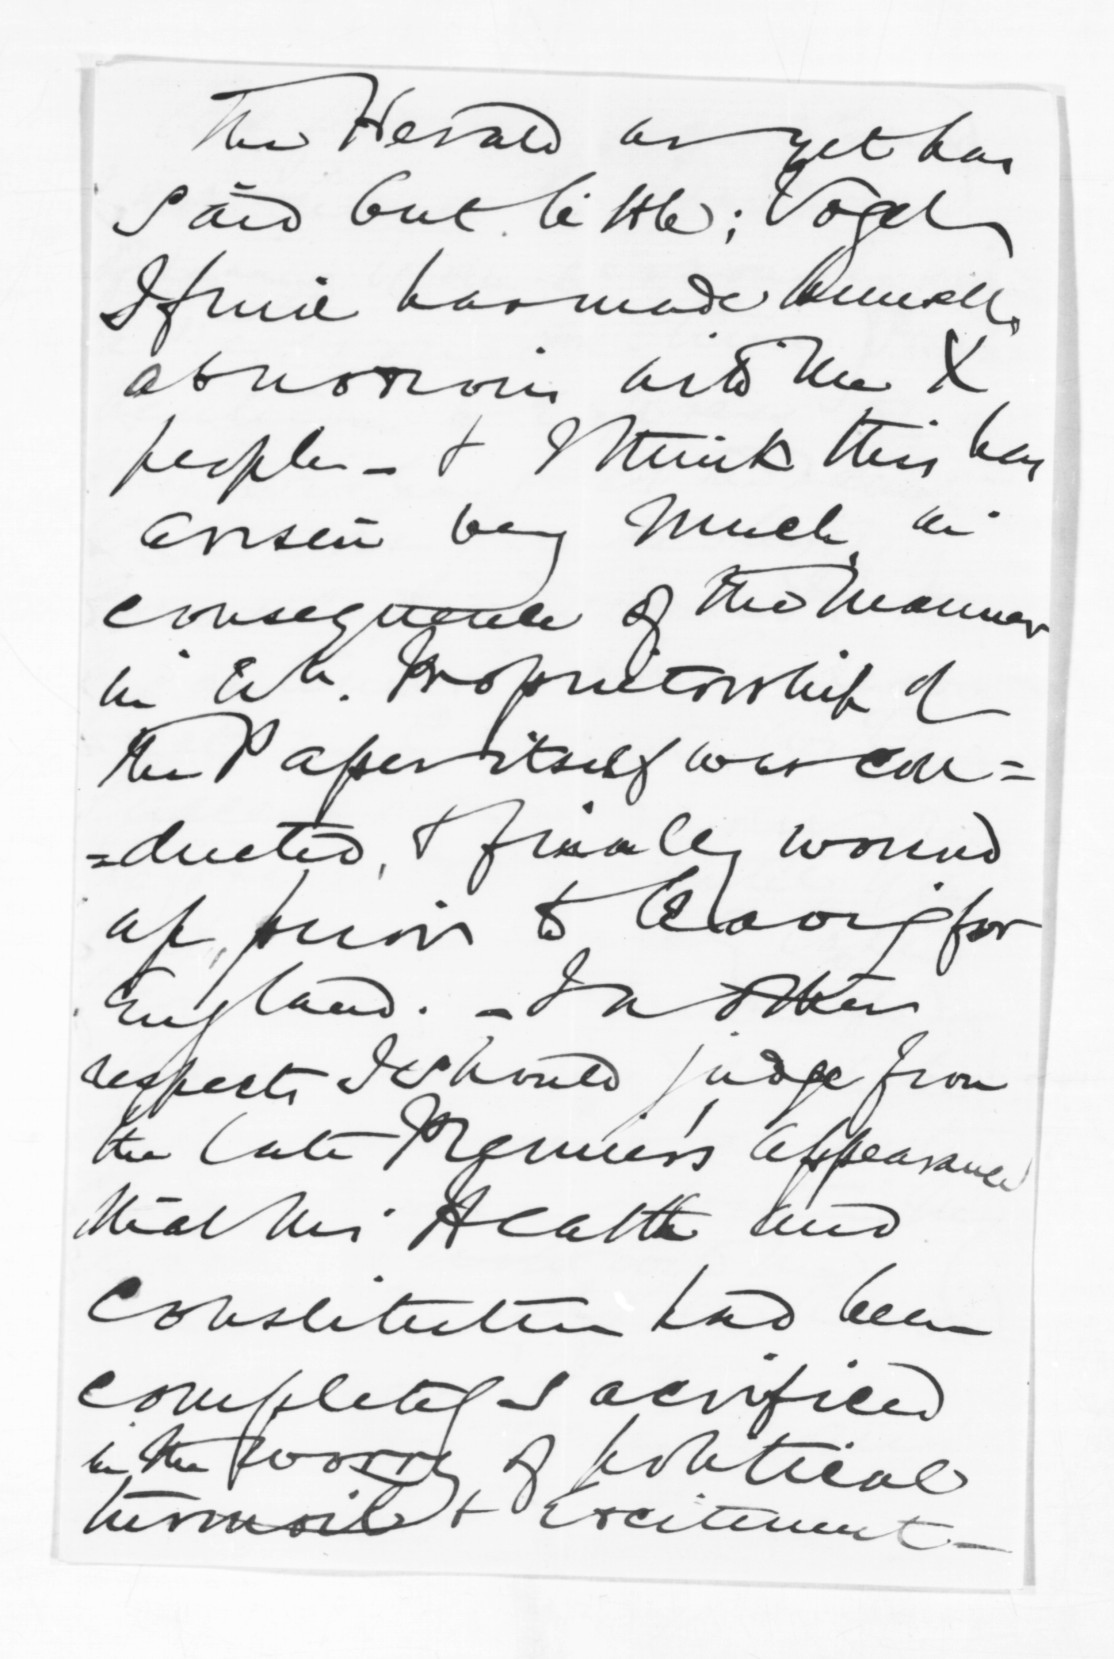 The Herald as yet has
said but little; Vogel
I find has made himself
obnoxious with the X
people - & I think this has
arisen very much in
consequence of the manner
in wh. Proprietorship of
the Paper itself was con=
=ducted, & finally wound
up, prior to leaving for
England. - In other
respects I should judge from
the late Premier's appearance
that his Health and
Constitution had been
completely sacrificed
in the worry of political
turmoil & Excitement -